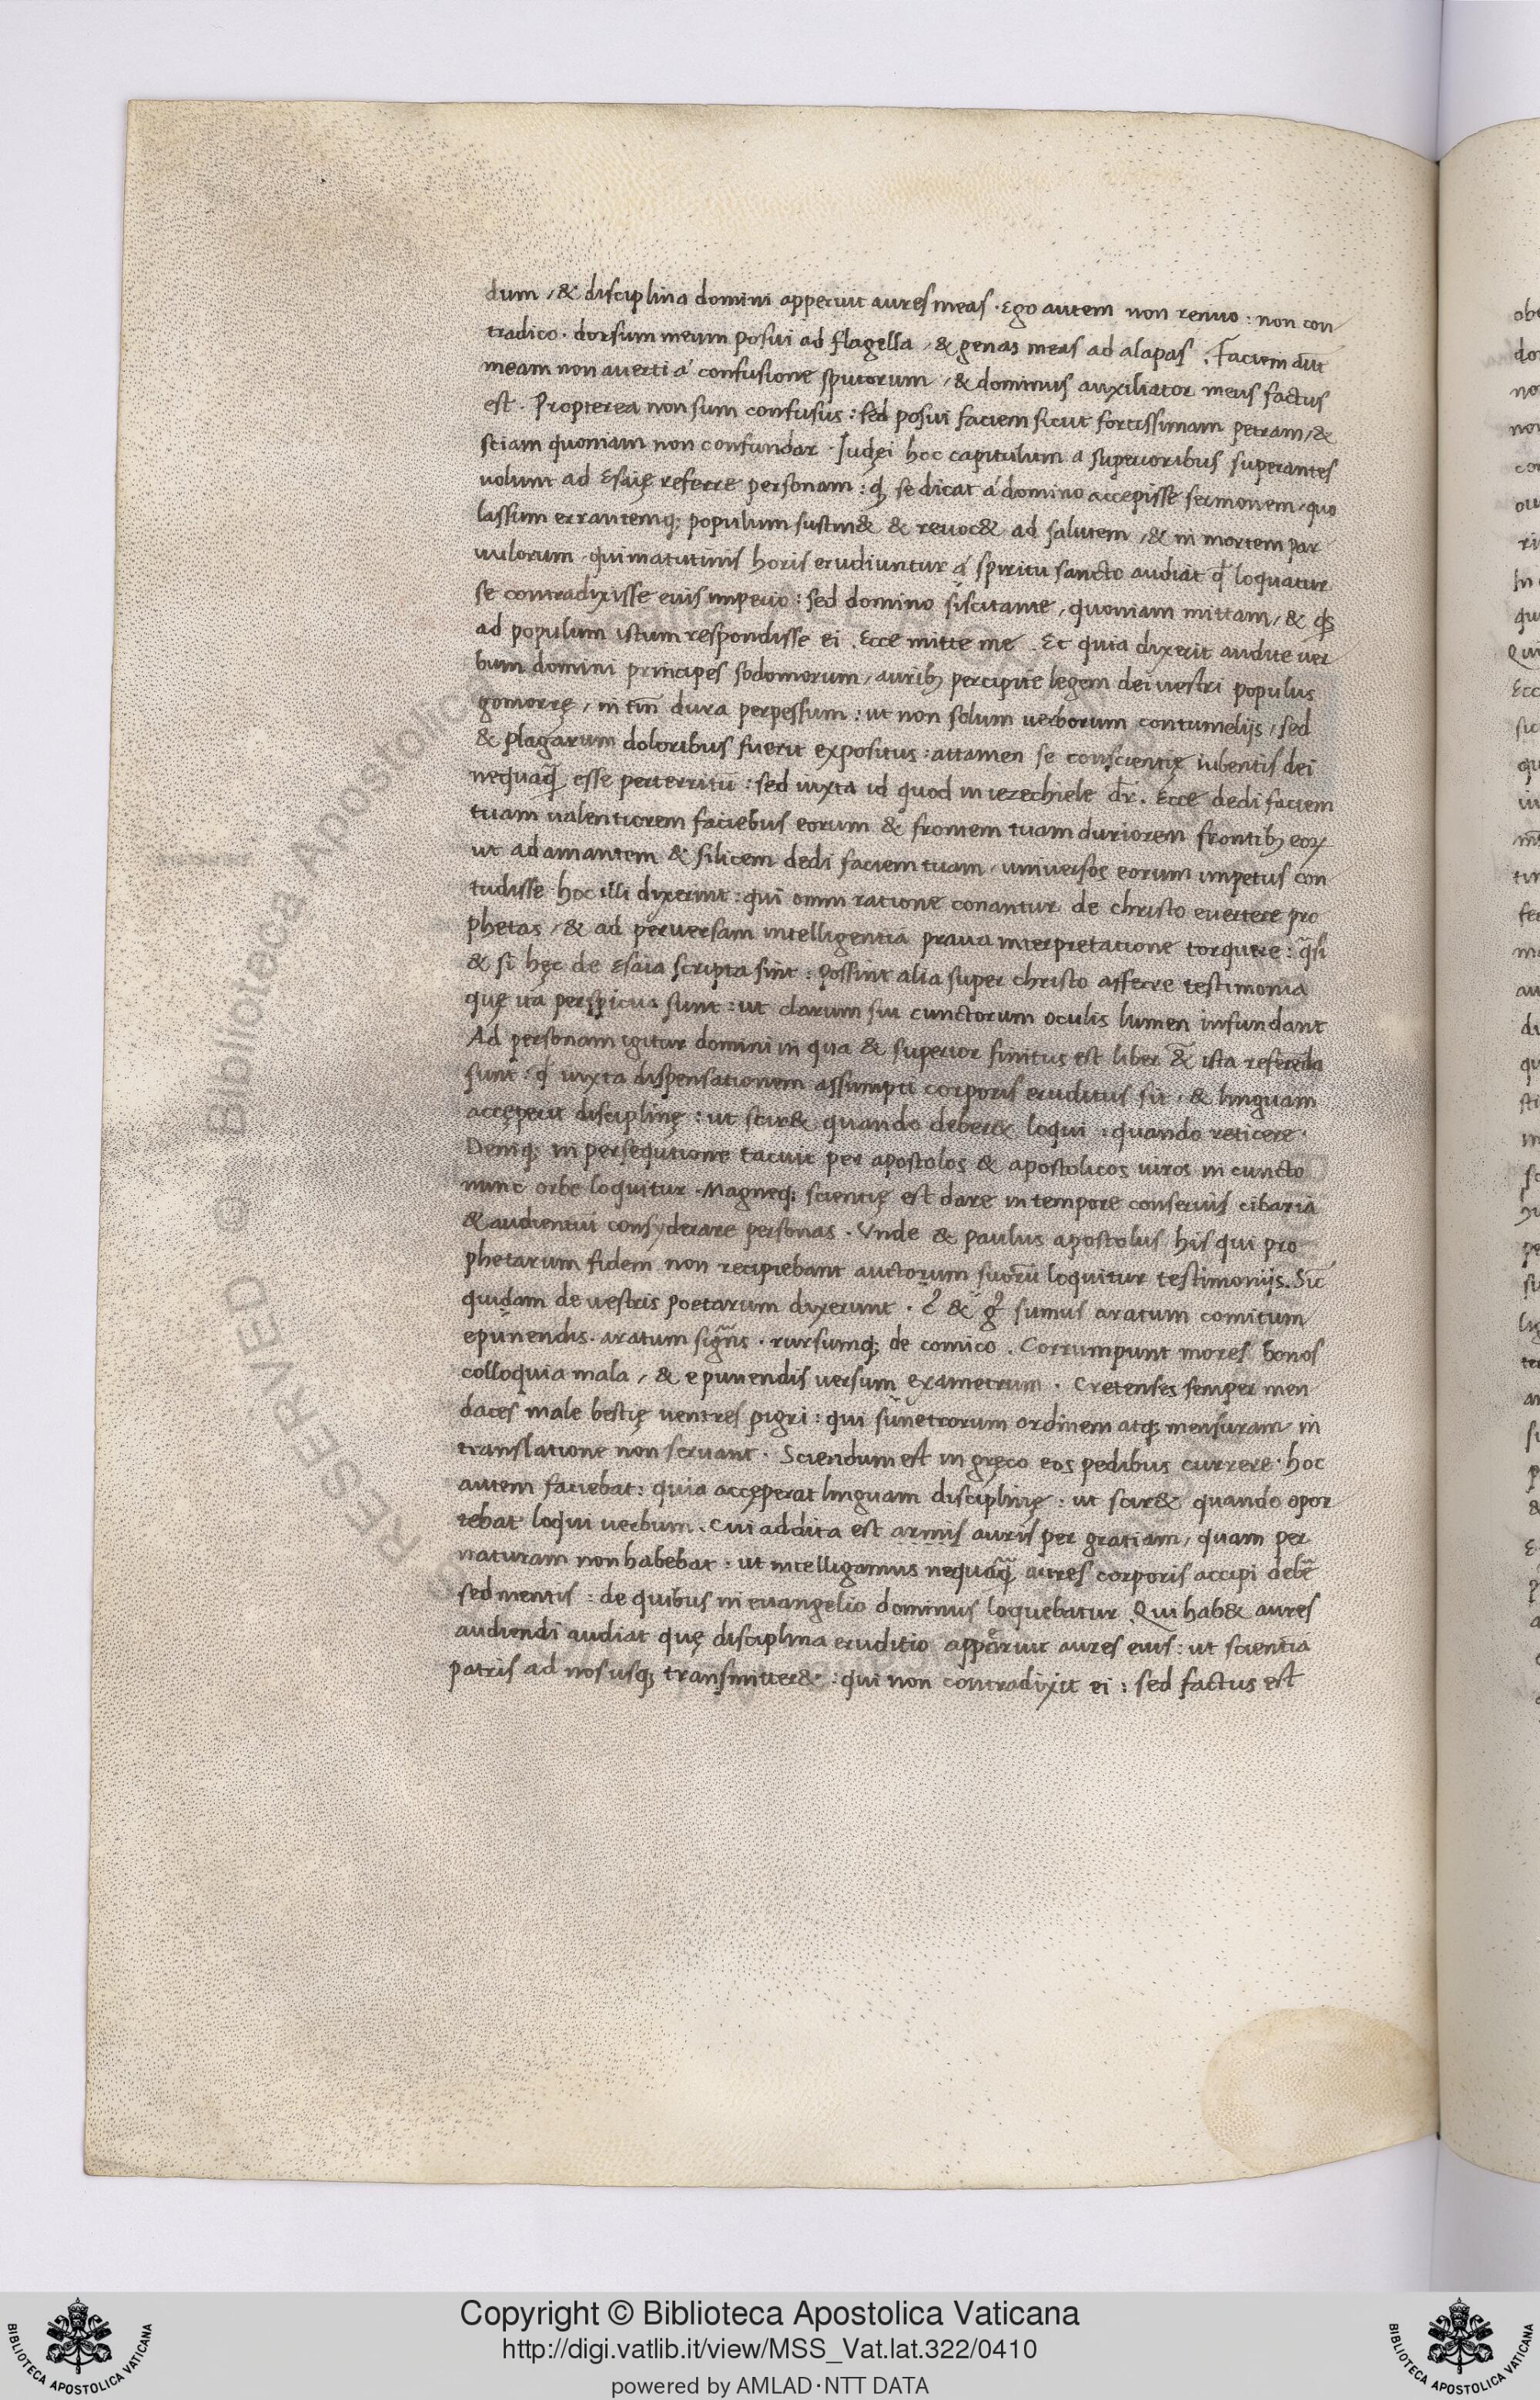 dum, & disciplina domini apperuit aures meas. Ego autem non renuo: non con
tradico. dorsum meum posui ad flagella, & genas meas ad alapas. Faciem aut̄
meam non auerti á confusione sputorum, & dominus auxiliator meus factus
est. Propterea non sum confusus: sed posui faciem sicut fortissimam petram, &
sciam quoniam non confundar. Iudęi hoc capitulum a superioribus superantes
uolunt ad Esaię referre personam: ꝙ se dicat á domino accepisse sermonem, quo
lassum errantemq; populum sustin& & reuoc& ad salutem, & in mortem par
uulorum qui matutinis horis erudiuntur á spiritu sancto audiat qđ loquatur
se contradixisse eius imperio: sed domino siscitante, quoniam mittam, & qs
ad populum istum respondisse ei. Ecce mitte me. Et quia dixerit audite uer
bum domini principes sodomorum, aurib; percipite legem dei uestri populus
gomorrę, in tm̄ dura perpessum: ut non solum uerborum contumelijs, sed
& plagarum doloribus fuerit expositus: attamen se conscientię iubentis dei
nequaq̄ esse perterritū: sed iuxta id quod in iezechiele dr̄. Ecce dedi faciem
tuam ualentiorem faciebus eorum & frontem tuam duriorem frontib; eoꝝ
ut adamantem & silicem dedi faciem tuam, uniuersos eorum impetus con
tudisse. hoc illi dixerint: qui omni ratione conantur de christo euertere pro
phetas, & ad peruersam intelligentiā praua interpretatione torquere: q̄si
& si hęc de Esaia scripta sint: possint alia super christo afferre testimonia
quę ita perspicua sunt: ut clarum sui cunctorum oculis lumen infundant
Ad personam igitur domini in qua & superior finitus est liber & ista referēda
sunt: qđ iuxta dispensationem assumpti corporis eruditus sit, & linguam
accęperit disciplinę: ut scir& quando deber& loqui: quando reticere.
Deniq; in persequtione tacuit per apostolos & apostolicos uiros in cuncto
nunc orbe loquitur. Magneq; scientię est dare in tempore conseruis cibaria
& audientiū consyderare personas. Vnde & paulus apostolus his qui pro
phetarum fidem non recipiebant auctorum suorū loquitur testimonijs. Sic̄
quidam de uestris poetarum dixerunt. & sumus aratum comitum
epunendis. aratum sign̄s. rursumq; de comico. Corrumpunt mores bonos
colloquia mala, & epunendis uersum exametrum. Cretenses semper men
daces male bestię uentres pigri: qui si metrorum ordinem atq; mensuram in
translatione non seruant. Sciendum est in gręco eos pedibus currere. hoc
autem faciebat: quia accęperat linguam disciplinę: ut scir& quando opor
tebat loqui uerbum. Cui addita est armis auris per gratiam, quam per
naturam non habebat: ut intelligamus nequaq̄ aures corporis accipi debē
sed mentis: de quibus in euangelio dominus loquebatur. Qui hab& aures
audiendi audiat quę disciplina eruditio apparuit aures eius: ut scientia
patris ad nos usq; transmitter&: qui non contradixit ei: sed factus est
RESERVED © Biblioteca Apostolica
Copyright © Biblioteca Apostolica Vaticana
http://digi.vatlib.it/view/MSS_Vat.lat.322/0410
powered by AMLAD·NTT DATA
BIBLIOTECA APOSTOLICA VATICANA
BIBLIOTECA APOSTOLICA VATICANA